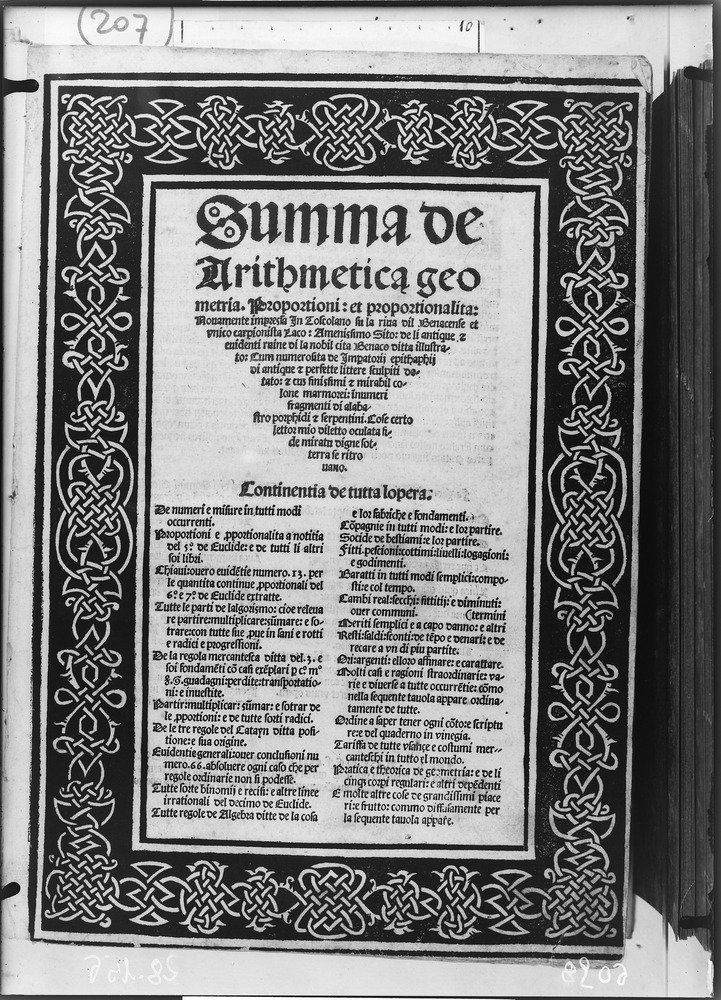 (207)
10
Summa de
Arithmetica geo
metria. Proportioni: et proportionalita:
Nouamente impressa In Toscolano su la riua dil Benacense et
vnico carpionista Laco: Amenissimo Sito: de li antique ⁊
euidenti ruine di la nobil cita Benaco ditta illustra-
to: Cum numerosita de Impatorij epithaphij
di antique ⁊ perfette littere sculpiti do-
tato: ⁊ cus finissimi ⁊ mirabil co-
lone marmorei: inumeri
fragmenti di alaba-
stro porphidi ⁊ serpentini. Cose certo
lettor mio diletto oculata fi-
de miratu digne sot-
terra se ritro
uano.
Continentia de tutta lopera.
De numeri e misure in tutti modi
occurrenti.
Proportioni e ꝓportionalita a notitia
del 5º de Euclide: e de tutti li altri
soi libri.
Chiaui: ouero euidētie numero. 13. per
le quantita continue ꝓportionali del
6º e 7º de Euclide extratte.
Tutte le parti de lalgorismo: cioe releua
re partire: multiplicare: sūmare: e so-
trare: con tutte sue ꝓue in sani e rotti
e radici e progressioni.
De la regola mercantesca ditta del. 3. e
soi fondamēti cō casi exēplari ꝑ cº mº
§. G. guadagni: perdite: transportatio-
ni: e inuestite.
Partir: multiplicar: sūmar: e sotrar de
le ꝓportioni: e de tutte sorti radici.
De le tre regole del Catayn ditta posi-
tione: e sua origine.
Euidentie generali: ouer conclusioni nu
mero. 66. absoluere ogni caso che per
regole ordinarie non si podesse.
Tutte sorte binomij e recisi: e altre linee
irrationali del decimo de Euclide.
Tutte regole de Algebra ditte de la cosa
e lor fabriche e fondamenti.
Cōpagnie in tutti modi: e lor partire.
Socide de bestiami: e lor partire.
Fitti: pescioni: cottimi: liuelli: logagioni:
e godimenti.
Baratti in tutti modi semplici: compo-
sti: e col tempo.
Cambi real: secchi: fittitij: e diminuti:
ouer communi. (termini
Meriti semplici e a capo danno: e altri
Resti: saldi: sconti: de tēpo e denari: e de
recare a vn di piu partite.
Ori: argenti: elloro affinare: e carattare.
Molti casi e ragioni straordinarie: va-
rie e diuerse a tutte occurrētie: cōmo
nella sequente tauola appare ordina-
tamente de tutte.
Ordine a saper tener ogni cōto: e scriptu
re: e del quaderno in vinegia.
Tariffa de tutte vsançe e costumi mer-
canteschi in tutto el mondo.
Pratica e theorica de geometria: e de li
cinqꝫ corpi regulari: e altri depēdenti
E molte altre cose de grandissimi piace
ri: e frutto: commo diffusamente per
la sequente tauola appare.